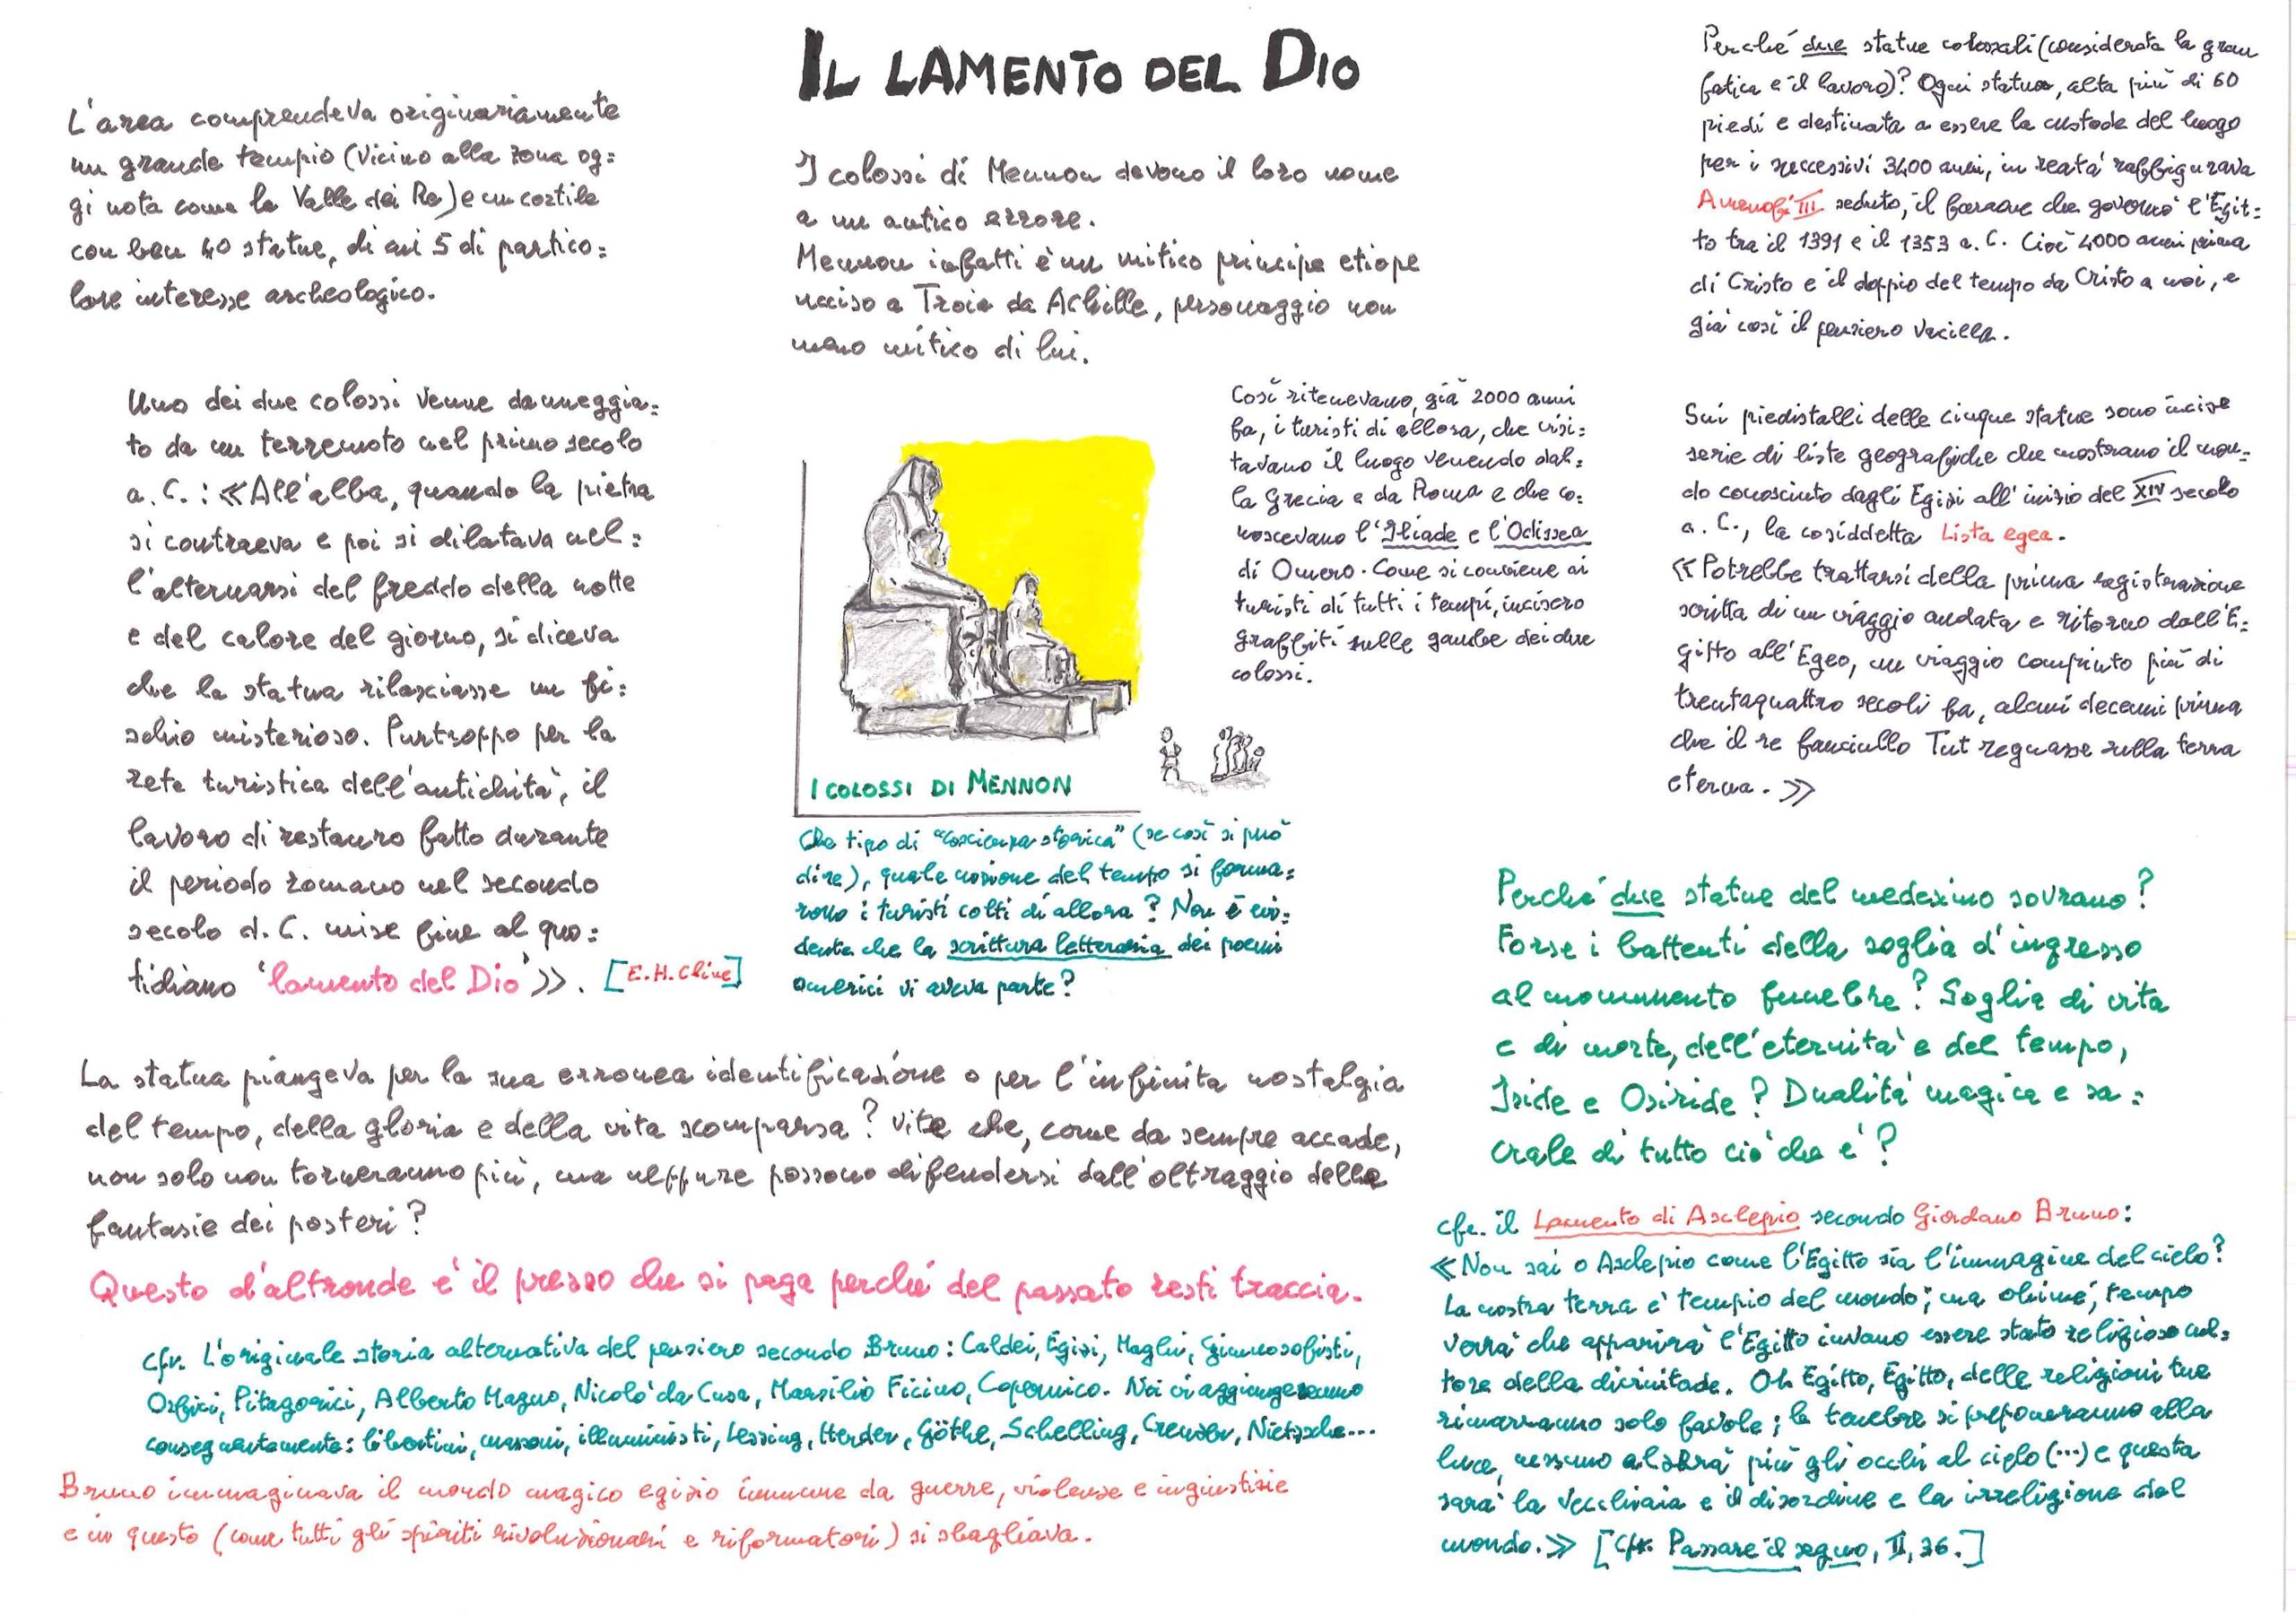 IL LAMENTO DEL DIO
L'area comprendeva originariamente
un grande tempio (vicino alla zona og=
gi nota come la Valle dei Re) e un cortile
con ben 40 statue, di cui 5 di partico=
lare interesse archeologico.
Uno dei due colossi venne danneggia=
to da un terremoto nel primo secolo
a. C. : «All'alba, quando la pietra
si contraeva e poi si dilatava nel=
l'alternarsi del freddo della notte
e del calore del giorno, si diceva
che la statua rilasciasse un fi=
schio misterioso. Purtroppo per la
rete turistica dell'antichità, il
lavoro di restauro fatto durante
il periodo romano nel secondo
secolo d. C. mise fine al quo=
tidiano 'lamento del Dio'». [E.H. Cline]
I colossi di Mennon devono il loro nome
a un antico errore.
Mennon infatti è un mitico principe etiope
ucciso a Troia da Achille, personaggio non
meno mitico di lui.
Così ritenevano, già 2000 anni
fa, i turisti di allora, che visi=
tavano il luogo venendo dal=
la Grecia e da Roma e che co=
noscevano l'Iliade e l'Odissea
di Omero. Come si conviene ai
turisti di tutti i tempi, incisero
graffiti sulle gambe dei due
colossi.
I COLOSSI DI MENNON
Che tipo di "coscienza storica" (se così si può
dire), quale nozione del tempo si forma=
rono i turisti colti di allora? Non è evi=
dente che la scrittura letteraria dei poemi
omerici vi aveva parte?
Perché due statue colossali (considerata la gran
fatica e il lavoro)? Ogni statua, alta più di 60
piedi e destinata a essere la custode del luogo
per i successivi 3400 anni, in reatà raffigurava
Amenofi III seduto, il faraone che governò l'Egit=
to tra il 1391 e il 1353 a. C. Cioè 4000 anni prima
di Cristo e il doppio del tempo da Cristo a noi, e
già così il pensiero vacilla.
Sui piedistalli delle cinque statue sono incise
serie di liste geografiche che mostrano il mon=
do conosciuto dagli Egizi all'inizio del XIV secolo
a. C., la cosiddetta Lista egea.
«Potrebbe trattarsi della prima registrazione
scritta di un viaggio andata e ritorno dall'E=
gitto all'Egeo, un viaggio compiuto più di
trentaquattro secoli fa, alcuni decenni prima
che il re fanciullo Tut regnasse sulla terra
eterna.»
Perché due statue del medesimo sovrano?
Forse i battenti della soglia d'ingresso
al monumento funebre? Soglia di vita
e di morte, dell'eternità e del tempo,
Iside e Osiride? Dualità magica e sa=
crale di tutto ciò che è?
La statua piangeva per la sua erronea identificazione o per l'infinita nostalgia
del tempo, della gloria e della vita scomparsa? Vite che, come da sempre accade,
non solo non torneranno più, ma neppure possono difendersi dall'oltraggio delle
fantasie dei posteri?
Questo d'altronde è il prezzo che si paga perché del passato resti traccia.
cfr. L'originale storia alternativa del pensiero secondo Bruno: Caldei, Egizi, Maghi, Gimnosofisti,
Orfici, Pitagorici, Alberto Magno, Nicolò da Cusa, Marsilio Ficino, Copernico. Noi vi aggiungeremmo
conseguentemente: libertini, massoni, illuministi, Lessing, Herder, Göthe, Schelling, Creuzer, Nietzsche...
Bruno immaginava il mondo magico egizio immune da guerre, violenze e ingiustizie
e in questo (come tutti gli spiriti rivoluzionari e riformatori) si sbagliava.
cfr. il Lamento di Asclepio secondo Giordano Bruno:
«Non sai o Asclepio come l'Egitto sia l'immagine del cielo?
La nostra terra è tempio del mondo; ma ohimé, tempo
verrà che apparirà l'Egitto invano essere stato religioso cul=
tore della divinitade. Oh Egitto, Egitto, delle religioni tue
rimarranno solo favole; le tenebre si preponeranno alla
luce, nessuno alzerà più gli occhi al cielo (...) e questa
sarà la vecchiaia e il disordine e la irreligione del
mondo.» [Cfr. Passare il segno, II, 36.]